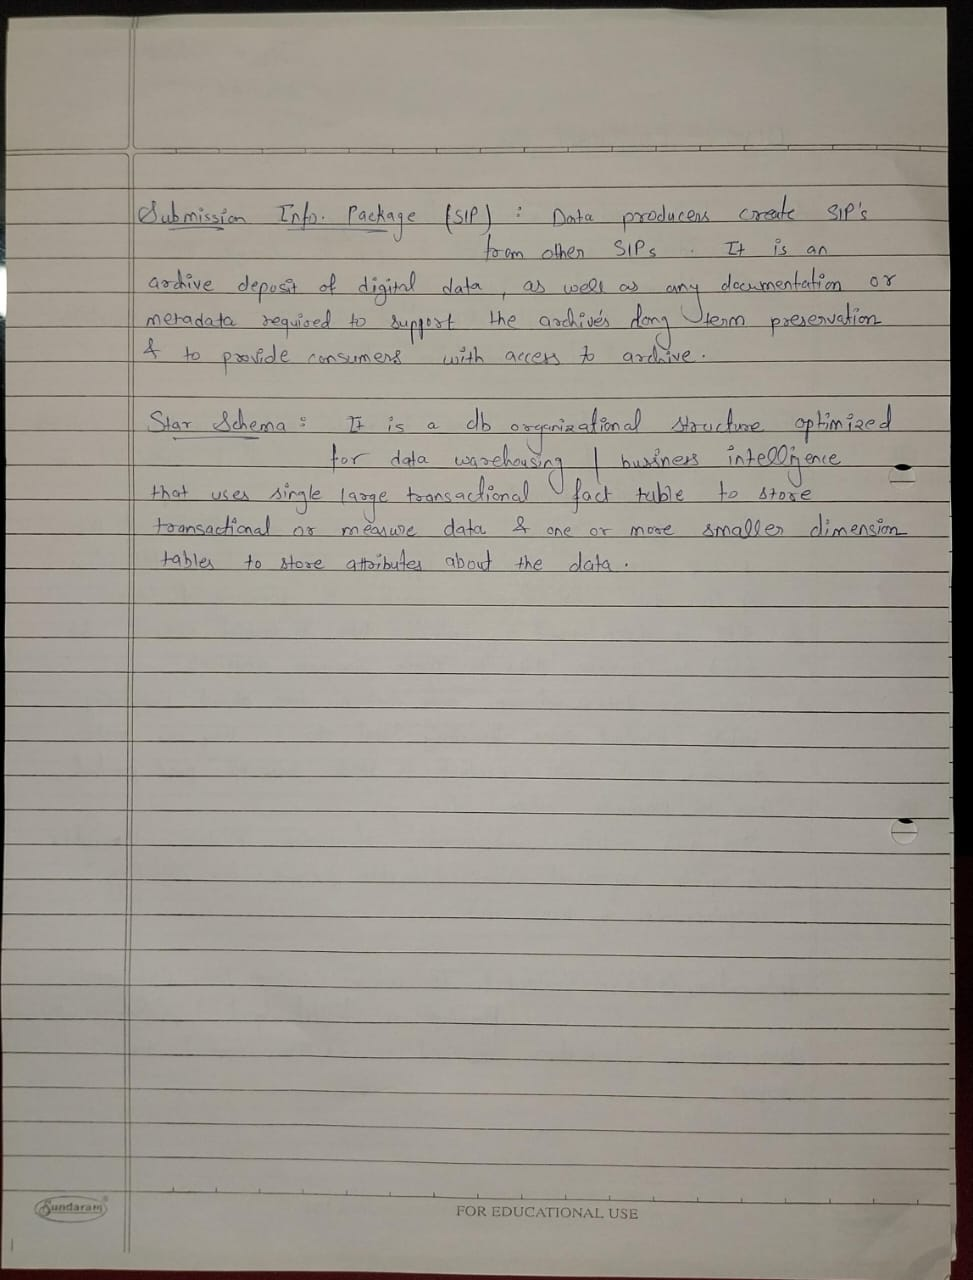 Submission Info. Package (SIP) : Data producers create SIP's
from other SIPs . It is an
archive deposit of digital data , as well as any documentation or
metadata required to support the archive's long term preservation
& to provide consumers with access to archive .
Star Schema : It is a db organizational structure optimized
for data warehousing / business intelligence
that uses single large transactional fact table to store
transactional or measure data & one or more smaller dimension
tables to store attributes about the data .
Sundaram®
FOR EDUCATIONAL USE